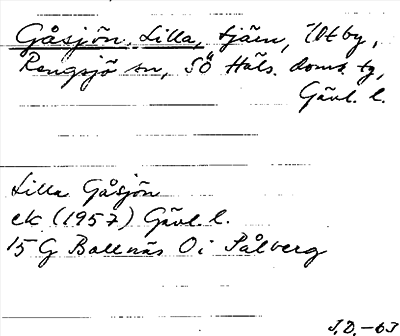 Gåsjön, Lilla, tjärn, Utby,
Rengsjö sn, SÖ Häls. doms. tg,
Gävl. l.
Lilla Gåsjön
ek (1957) Gävl. l.
15 G Bollnäs 0 i Pålberg
J.D. -63